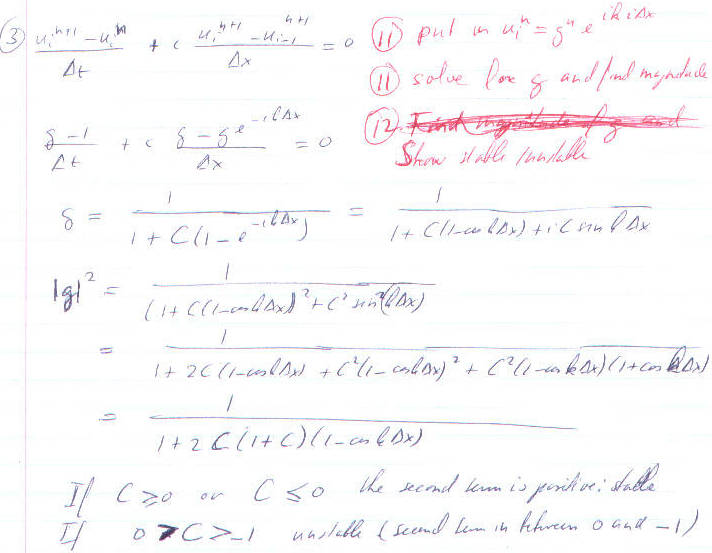 ③ (u_i^{n+1} - u_i^n)/Δt + c (u_i^{n+1} - u_{i-1}^{n+1})/Δx = 0
⑪ put in u_i^n = g^n e^{ikiΔx}
⑪ solve for g and find magnitude
⑫ Find magnitude of g and
Show stable / unstable
(g - 1)/Δt + c (g - g e^{-ikΔx})/Δx = 0
g = 1/(1 + C(1 - e^{-ikΔx})) = 1/(1 + C(1 - cos kΔx) + i C sin kΔx)
|g|² = 1/((1 + C(1 - cos kΔx))² + C² sin²(kΔx))
= 1/(1 + 2C(1 - cos kΔx) + C²(1 - cos kΔx)² + C²(1 - cos kΔx)(1 + cos kΔx))
= 1/(1 + 2C(1 + C)(1 - cos kΔx))
If C ≥ 0 or C ≤ 0 the second term is positive: stable
If 0 > C > -1 unstable (second term in between 0 and -1)